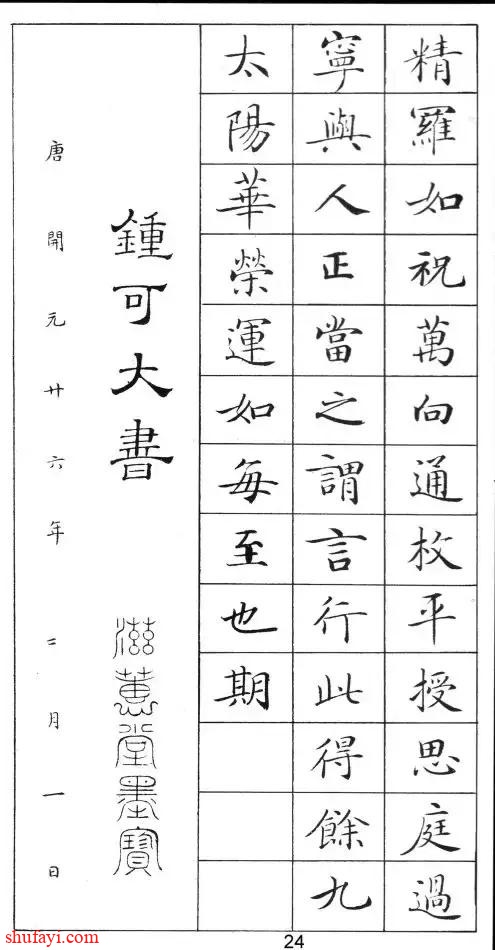 精羅如祝萬向通枚平授思庭過
寧與人正當之謂言行此得餘九
太陽華榮運如每至也期
鍾可大書
滋蕙堂墨寶
唐開元廿六年二月一日
shufayi.com
24